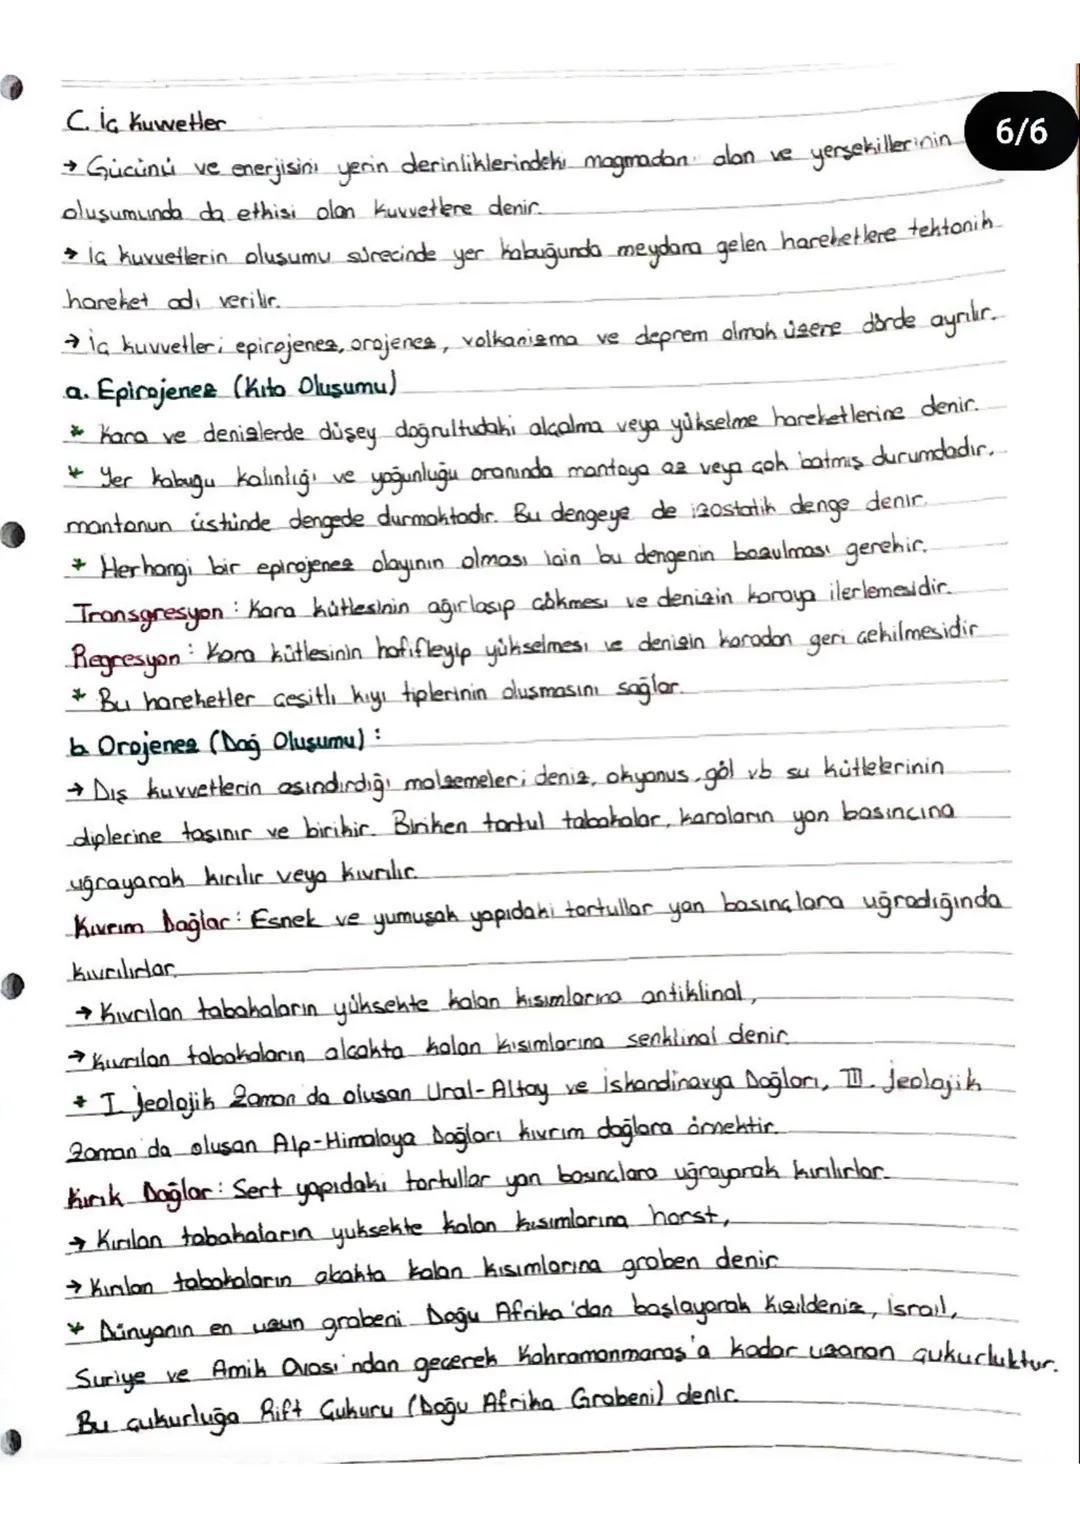 C. İç Kuvvetler
6/6
→ Gücünü ve enerjisini yerin derinliklerindeki magmadan alan ve yerşekillerinin
oluşumunda da etkisi olan kuvvetlere denir.
→ İç kuvvetlerin oluşumu sürecinde yer kabuğunda meydana gelen hareketlere tektonik
hareket adı verilir.
→ İç kuvvetler; epirojenez, orojenez, volkanizma ve deprem olmak üzere dörde ayrılır.
a. Epirojenez (Kıta Oluşumu)
* Kara ve denizlerde düşey doğrultudaki alçalma veya yükselme hareketlerine denir.
* Yer kabuğu kalınlığı ve yoğunluğu oranında mantoya az veya çok batmış durumdadır.
mantonun üstünde dengede durmaktadır. Bu dengeye de izostatik denge denir.
* Herhangi bir epirojenez olayının olması için bu dengenin bozulması gerekir.
Transgresyon: Kara kütlesinin ağırlaşıp çökmesi ve denizin karaya ilerlemesidir.
Regresyon: Kara kütlesinin hafifleyip yükselmesi ve denizin karadan geri çekilmesidir
* Bu hareketler çeşitli kıyı tiplerinin oluşmasını sağlar.
b Orojenez (Dağ Oluşumu):
→ Dış kuvvetlerin aşındırdığı malzemeler; deniz, okyonus, göl vb su kütlelerinin
diplerine taşınır ve birikir. Biriken tortul tabakalar, karaların yan basıncına
uğrayarak kırılır veya kıvrılır.
Kıvrım Dağlar: Esnek ve yumuşak yapıdaki tortullar yan basınçlara uğradığında
kıvrılırlar.
→ Kıvrılan tabakaların yüksekte kalan kısımlarına antiklinal,
→ Kıvrılan tabakaların alçakta kalan kısımlarına senklinal denir.
* I. Jeolojik Zaman'da oluşan Ural-Altay ve İskandinavya Dağları, III. Jeolojik
Zaman'da oluşan Alp-Himalaya Dağları kıvrım dağlara örnektir.
Kırık Dağlar: Sert yapıdaki tortullar yan basınçlara uğrayarak kırılırlar.
→ Kırılan tabakaların yuksekte kalan kısımlarına horst,
→ Kırılan tabakaların alçakta kalan kısımlarına graben denir
* Dünyanın en uzun grabeni Doğu Afrika'dan başlayarak Kızıldeniz, İsrail,
Suriye ve Amik Ovası'ndan geçerek Kahramanmaraş'a kadar uzanan çukurluktur.
Bu çukurluğa Rift Çukuru (Doğu Afrika Grabeni) denir.